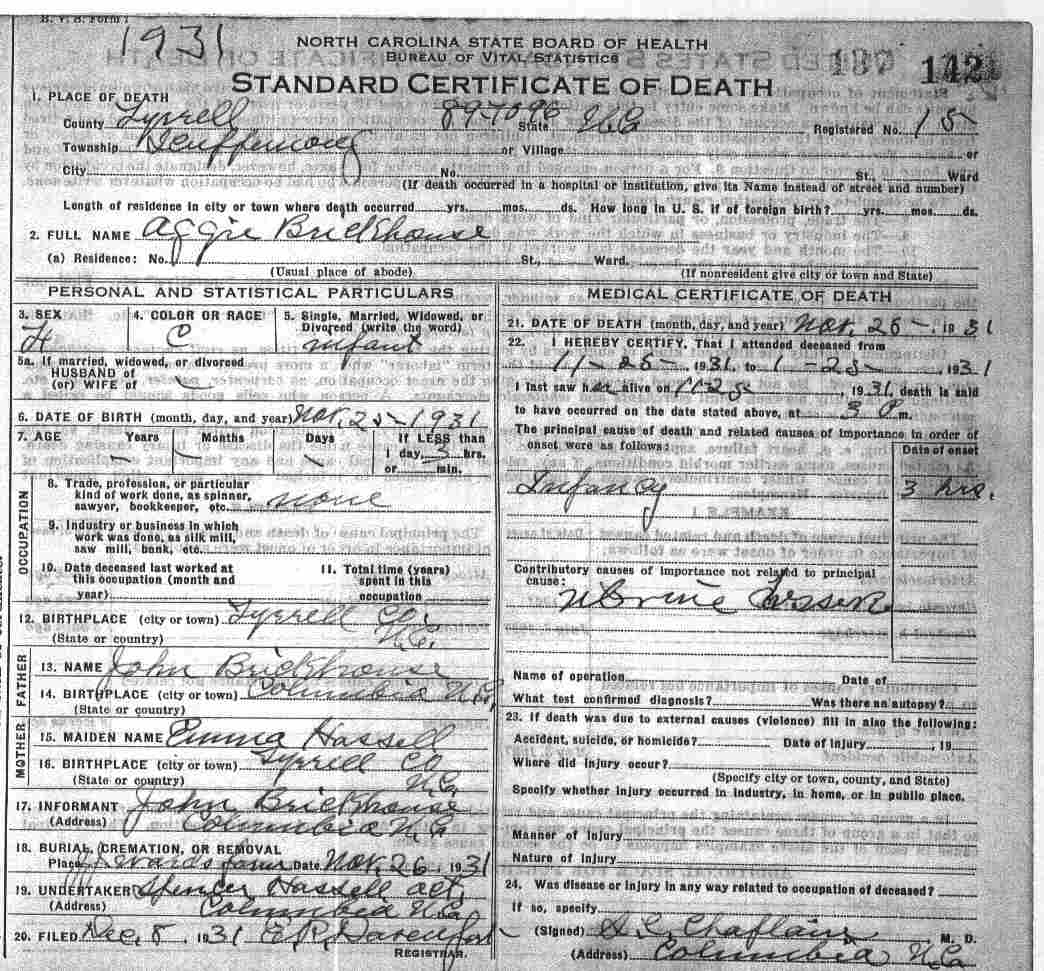 B. V. S. Form
1931
NORTH CAROLINA STATE BOARD OF HEALTH
BUREAU OF VITAL STATISTICS
137 142
STANDARD CERTIFICATE OF DEATH
1. PLACE OF DEATH
County Tyrrell 89-7096 State N.C. Registered No. 15
Township Scuppernong or Village or
City No. St. Ward
(If death occurred in a hospital or institution, give its Name instead of street and number)
Length of residence in city or town where death occurred yrs. mos. ds. How long in U. S. if of foreign birth? yrs. mos. ds.
2. FULL NAME Aggie Brickhouse
(a) Residence: No. St., Ward.
(Usual place of abode) (If nonresident give city or town and State)
PERSONAL AND STATISTICAL PARTICULARS
3. SEX 4. COLOR OR RACE 5. Single, Married, Widowed, or
Divorced (write the word)
F C infant
5a. If married, widowed, or divorced
HUSBAND of
(or) WIFE of
6. DATE OF BIRTH (month, day, and year) Nov. 25 - 1931
7. AGE Years Months Days If LESS than
1 day, 3 hrs.
or min.
OCCUPATION
8. Trade, profession, or particular
kind of work done, as spinner,
sawyer, bookkeeper, etc. none
9. Industry or business in which
work was done, as silk mill,
saw mill, bank, etc.
10. Date deceased last worked at
this occupation (month and
year)
11. Total time (years)
spent in this
occupation
12. BIRTHPLACE (city or town) Tyrrell Co.
(State or country) N.C.
FATHER
13. NAME John Brickhouse
14. BIRTHPLACE (city or town) Columbia N.C.
(State or country)
MOTHER
15. MAIDEN NAME Emma Hassell
16. BIRTHPLACE (city or town) Tyrrell Co
(State or country) N.C.
17. INFORMANT John Brickhouse
(Address) Columbia N.C.
18. BURIAL, CREMATION, OR REMOVAL
Place farm Date Nov. 26 1931
19. UNDERTAKER Spencer Hassell act.
(Address) Columbia N.C.
20. FILED Dec. 8, 1931 E.R. Davenport
REGISTRAR.
MEDICAL CERTIFICATE OF DEATH
21. DATE OF DEATH (month, day, and year) Nov. 25-, 1931
22. I HEREBY CERTIFY, That I attended deceased from
11-25-, 1931, to 1 -25-, 1931
I last saw her alive on 11-25, 1931, death is said
to have occurred on the date stated above, at 3 P m.
The principal cause of death and related causes of importance in order of
onset were as follows: Date of onset
Infancy 3 hrs.
Contributory causes of importance not related to principal
cause:
Name of operation Date of
What test confirmed diagnosis? Was there an autopsy?
23. If death was due to external causes (violence) fill in also the following:
Accident, suicide, or homicide? Date of injury , 19
Where did injury occur?
(Specify city or town, county, and State)
Specify whether injury occurred in industry, in home, or in public place.
Manner of Injury
Nature of Injury
24. Was disease or injury in any way related to occupation of deceased?
If so, specify
(Signed) M. D.
(Address) Columbia N.C.